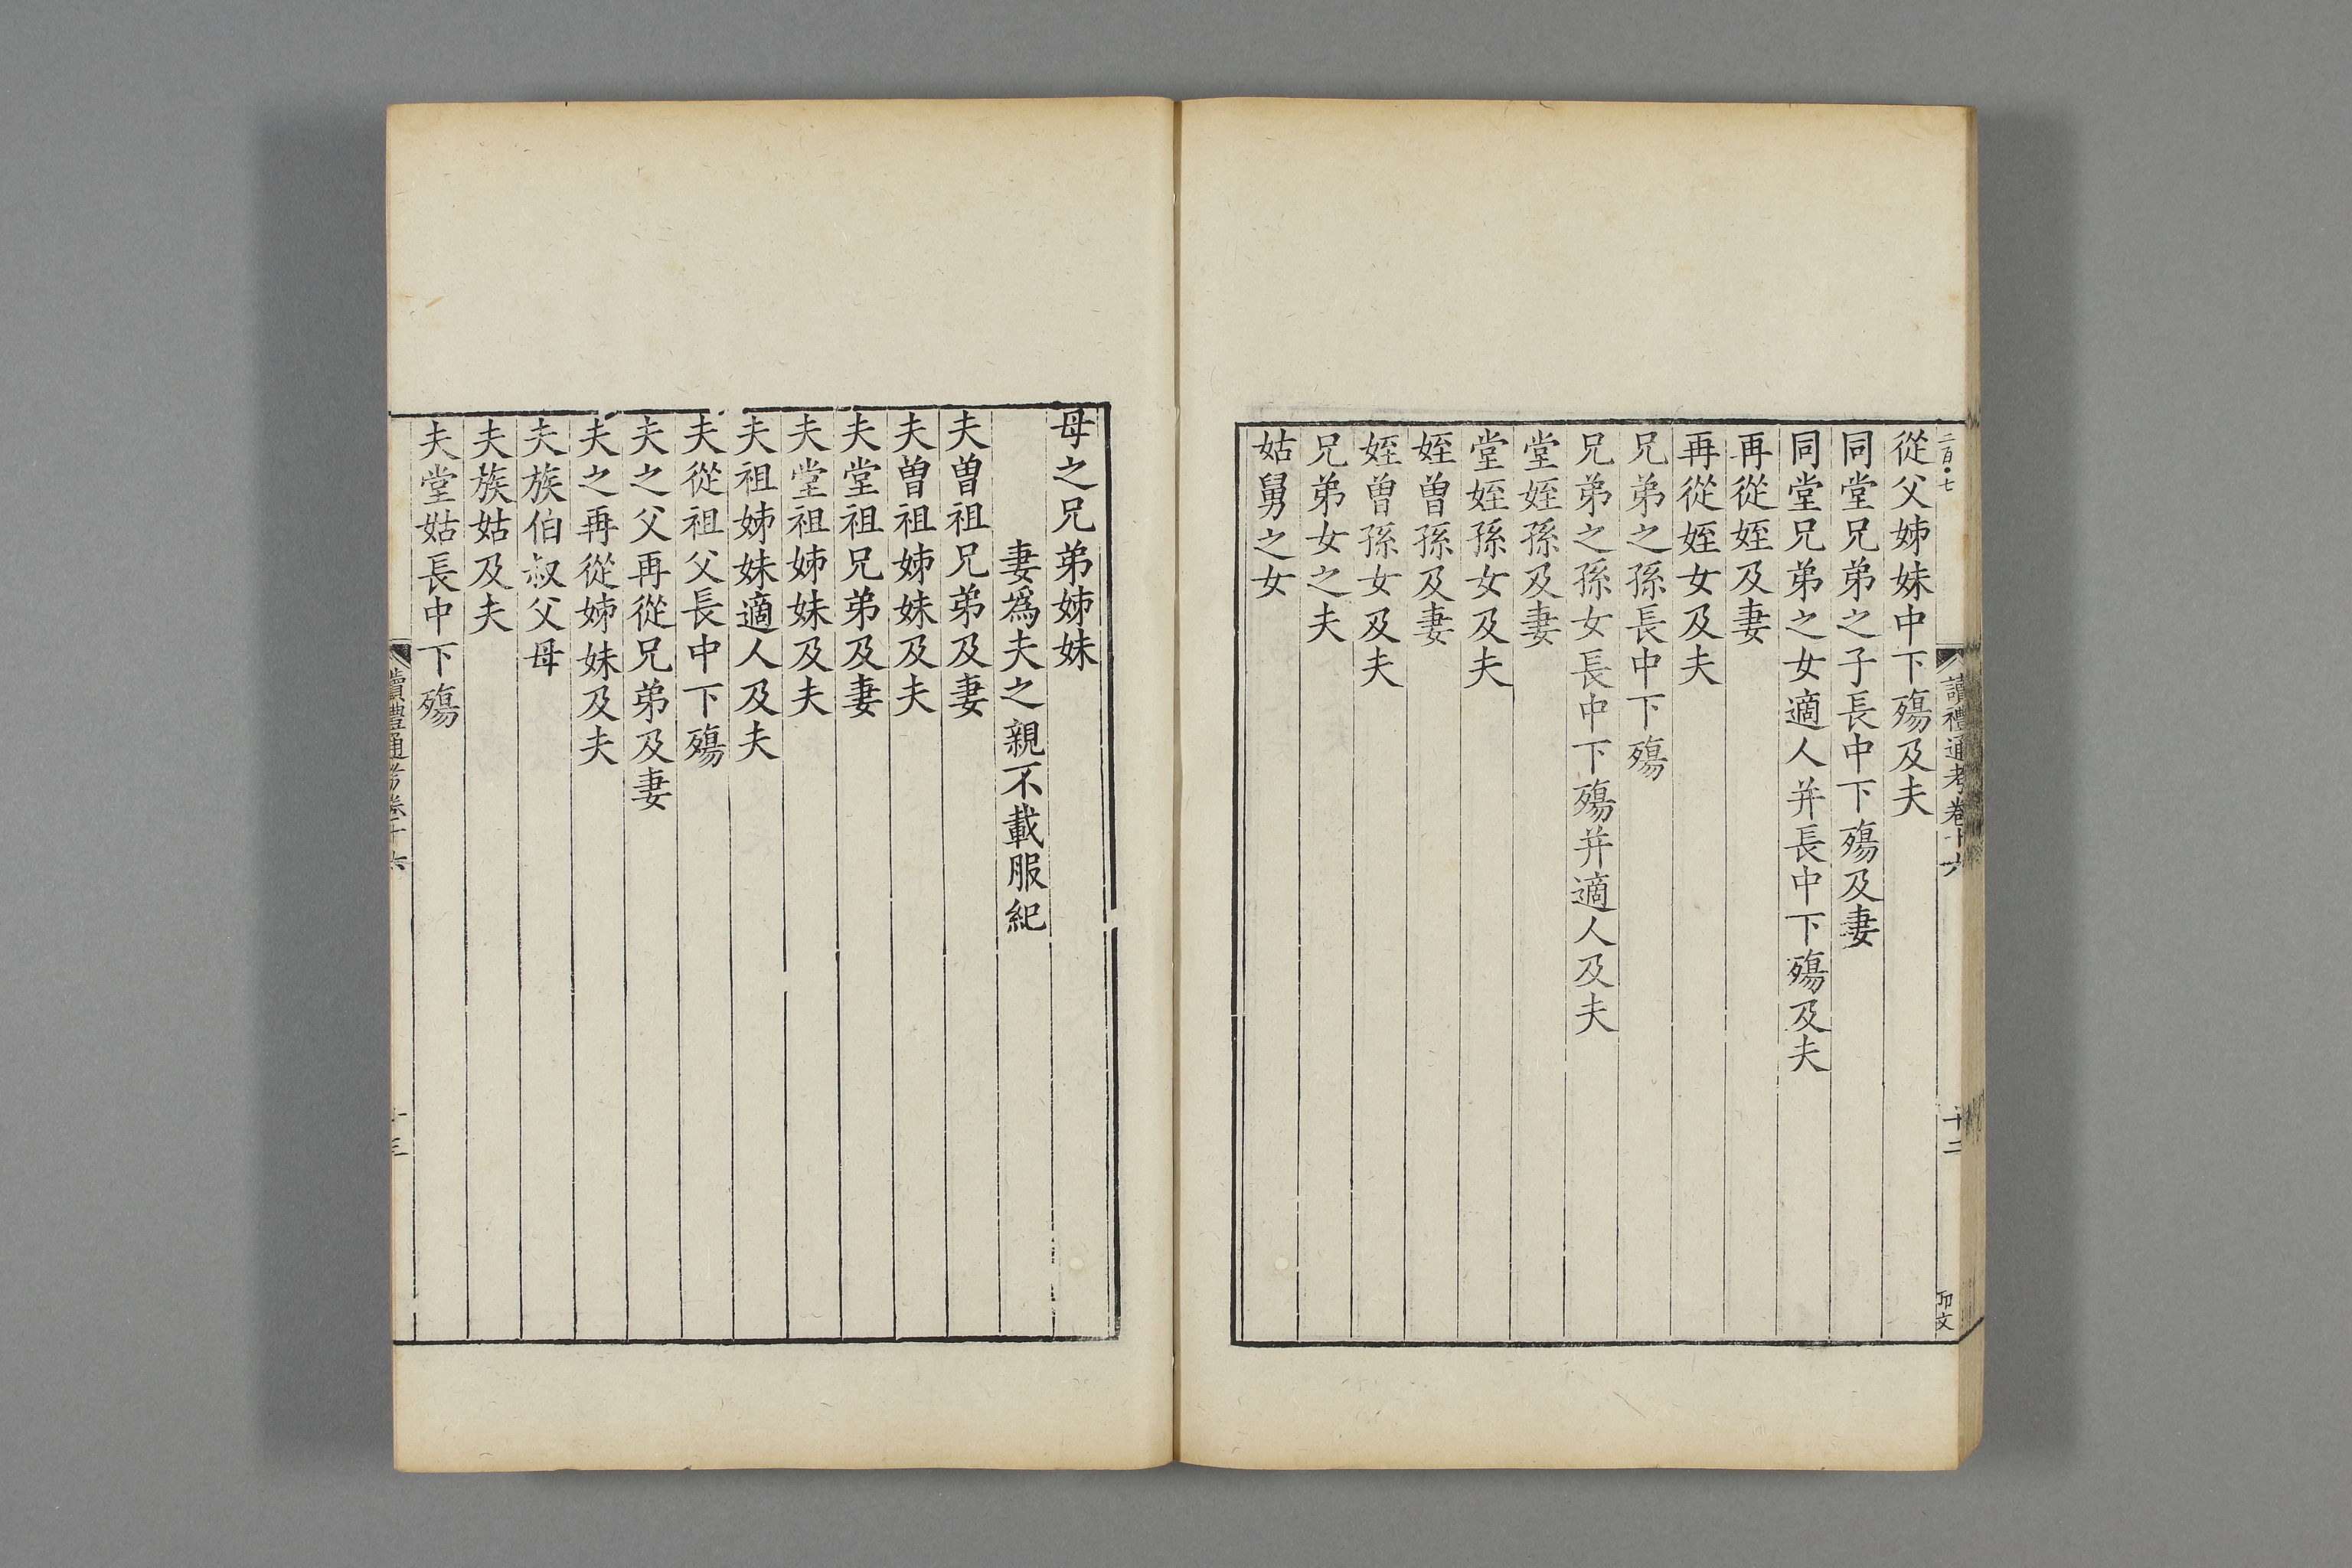 二百·七
讀禮通考卷十六
十二
從父姊妹中下殤及夫
同堂兄弟之子長中下殤及妻
同堂兄弟之女適人并長中下殤及夫
再從姪及妻
再從姪女及夫
兄弟之孫長中下殤
兄弟之孫女長中下殤并適人及夫
堂姪孫及妻
堂姪孫女及夫
姪曾孫及妻
姪曾孫女及夫
兄弟女之夫
姑舅之女
母之兄弟姊妹
妻爲夫之親不載服紀
夫曾祖兄弟及妻
夫曾祖姊妹及夫
夫堂祖兄弟及妻
夫堂祖姊妹及夫
夫祖姊妹適人及夫
夫從祖父長中下殤
夫之父再從兄弟及妻
夫之再從姊妹及夫
夫族伯叔父母
夫族姑及夫
夫堂姑長中下殤
讀禮通考卷十六
十三